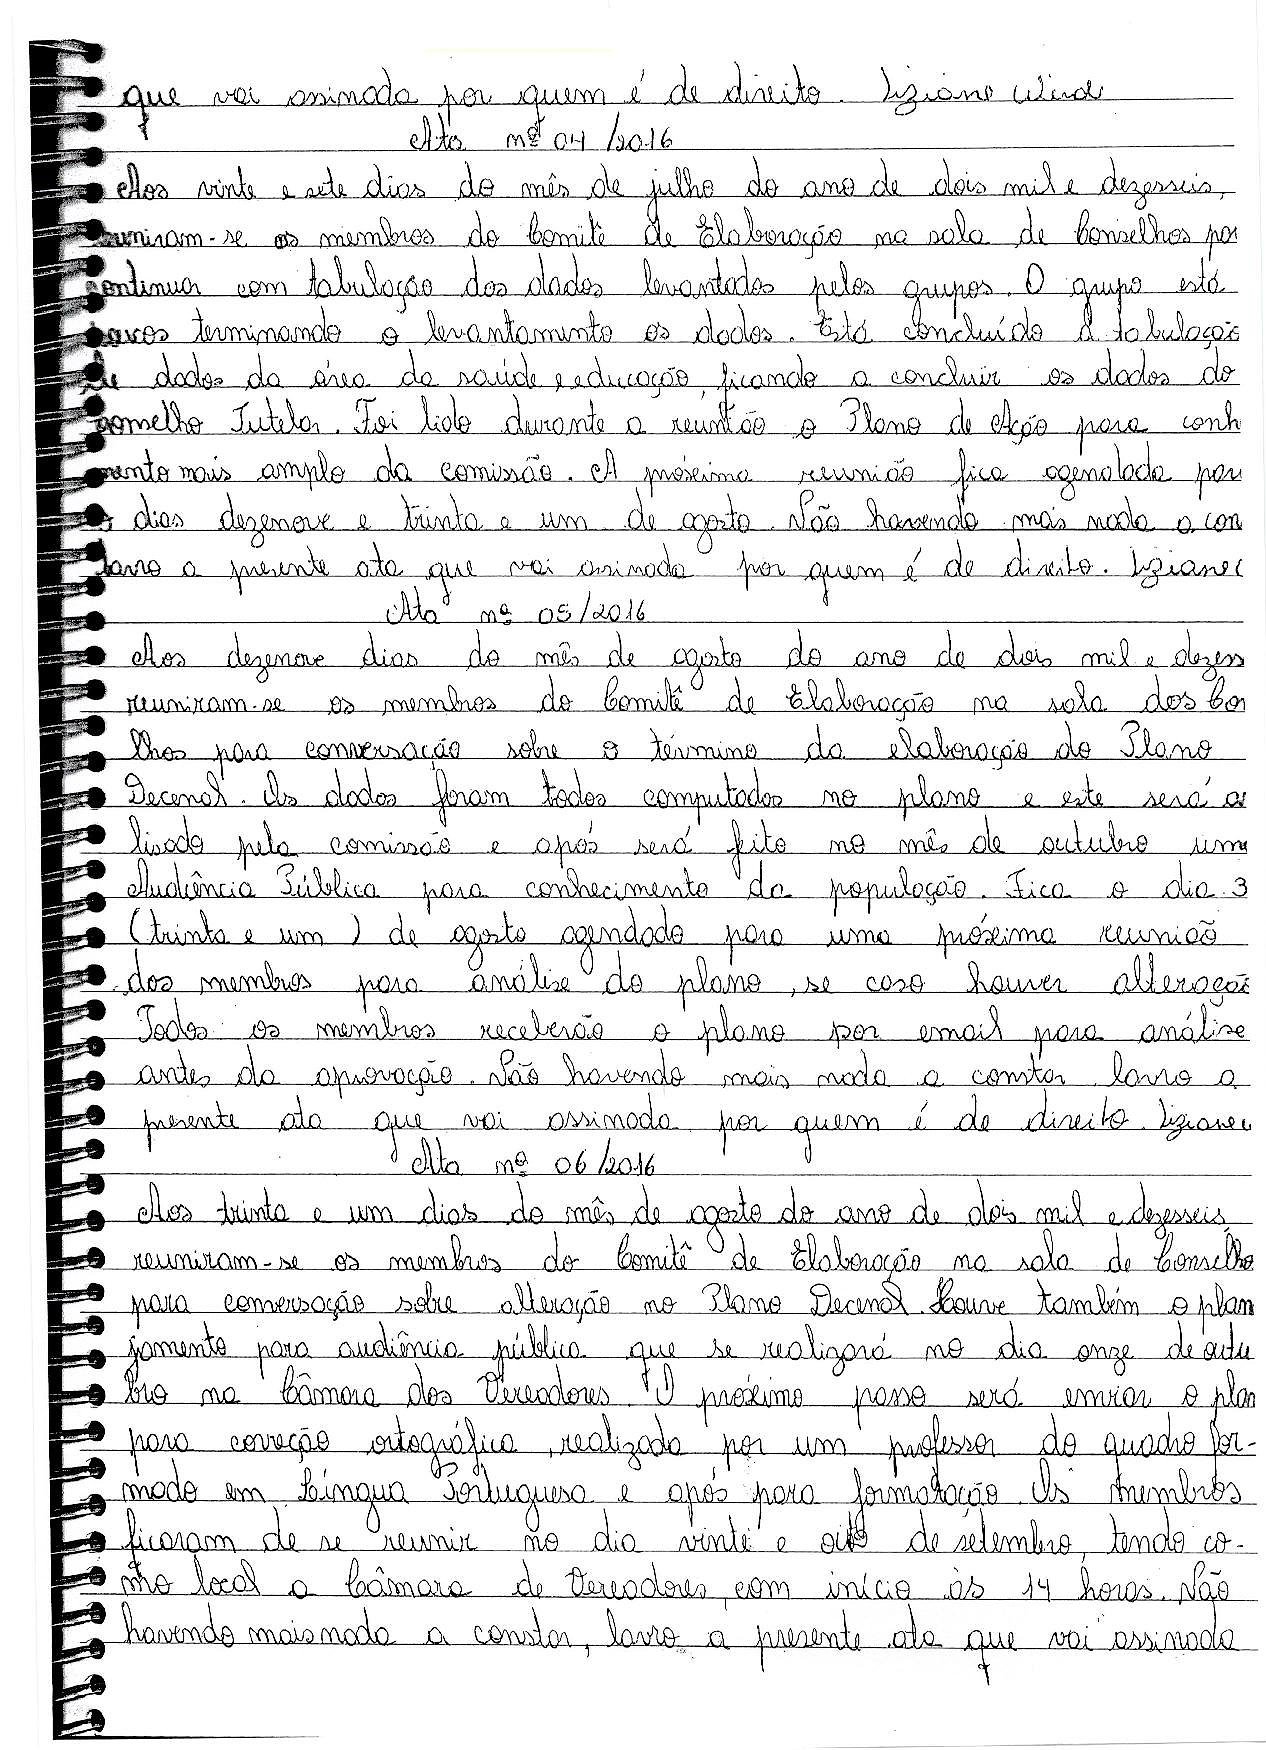 que vai assinada por quem é de direito. Liziane
Ata nº 04/2016
Aos vinte e sete dias do mês de julho do ano de dois mil e dezesseis,
reuniram-se os membros do Comitê de Elaboração na sala de Conselhos par
continuar com tabulação dos dados levantados pelos grupos. O grupo está
terminando o levantamento os dados. Está concluído a tabulação
de dados da área da saúde e educação, ficando a concluir os dados do
Conselho Tutelar. Foi lido durante a reunião o Plano de Ação para conh
mento mais amplo da comissão. A próxima reunião fica agendada par
os dias dezenove e trinta e um de agosto. Não havendo mais nada a con
lavro a presente ata que vai assinada por quem é de direito. Liziane
Ata nº 05/2016
Aos dezenove dias do mês de agosto do ano de dois mil e dezess
reuniram-se os membros do Comitê de Elaboração na sala dos Con
lhos para conversação sobre o término da elaboração do Plano
Decenal. Os dados foram todos computados no plano e este será a
lisado pela comissão e após será feito no mês de outubro uma
Audiência Pública para conhecimento da população. Fica o dia 3
(trinta e um) de agosto agendado para uma próxima reunião
dos membros para análise do plano, se caso houver alteração
Todos os membros receberão o plano por email para análise
antes da aprovação. Não havendo mais nada a constar lavro a
presente ata que vai assinada por quem é de direito. Liziane
Ata nº 06/2016
Aos trinta e um dias do mês de agosto do ano de dois mil e dezesseis,
reuniram-se os membros do Comitê de Elaboração na sala de Conselho
para conversação sobre alteração no Plano Decenal. Houve também o plan
jamento para audiência pública que se realizará no dia onze de outu
bro na Câmara dos Vereadores. O próximo passo será enviar o plan
para correção ortográfica, realizada por um professor do quadro for-
mado em Língua Portuguesa e após para formatação. Os membros
ficaram de se reunir no dia vinte e oito de setembro, tendo co-
mo local a Câmara de Vereadores, com início às 14 horas. Não
havendo mais nada a constar, lavro a presente ata que vai assinada